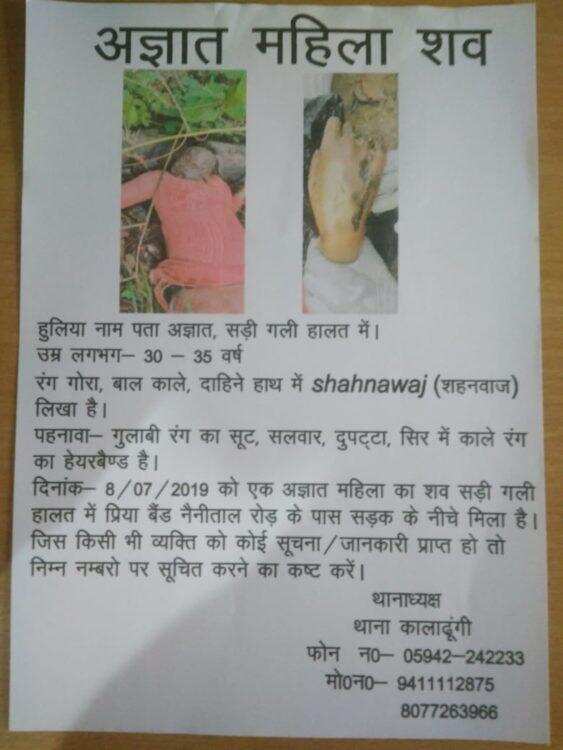 अज्ञात महिला शव
हुलिया नाम पता अज्ञात, सड़ी गली हालत में।
उम्र लगभग– 30 – 35 वर्ष
रंग गोरा, बाल काले, दाहिने हाथ में shahnawaj (शहनवाज)
लिखा है।
पहनावा– गुलाबी रंग का सूट, सलवार, दुपट्टा, सिर में काले रंग
का हेयरबैण्ड है।
दिनांक– 8/07/2019 को एक अज्ञात महिला का शव सड़ी गली
हालत में प्रिया बैंड नैनीताल रोड़ के पास सड़क के नीचे मिला है।
जिस किसी भी व्यक्ति को कोई सूचना/जानकारी प्राप्त हो तो
निम्न नम्बरो पर सूचित करने का कष्ट करें।
थानाध्यक्ष
थाना कालाढूंगी
फोन न0– 05942–242233
मो0न0– 9411112875
8077263966